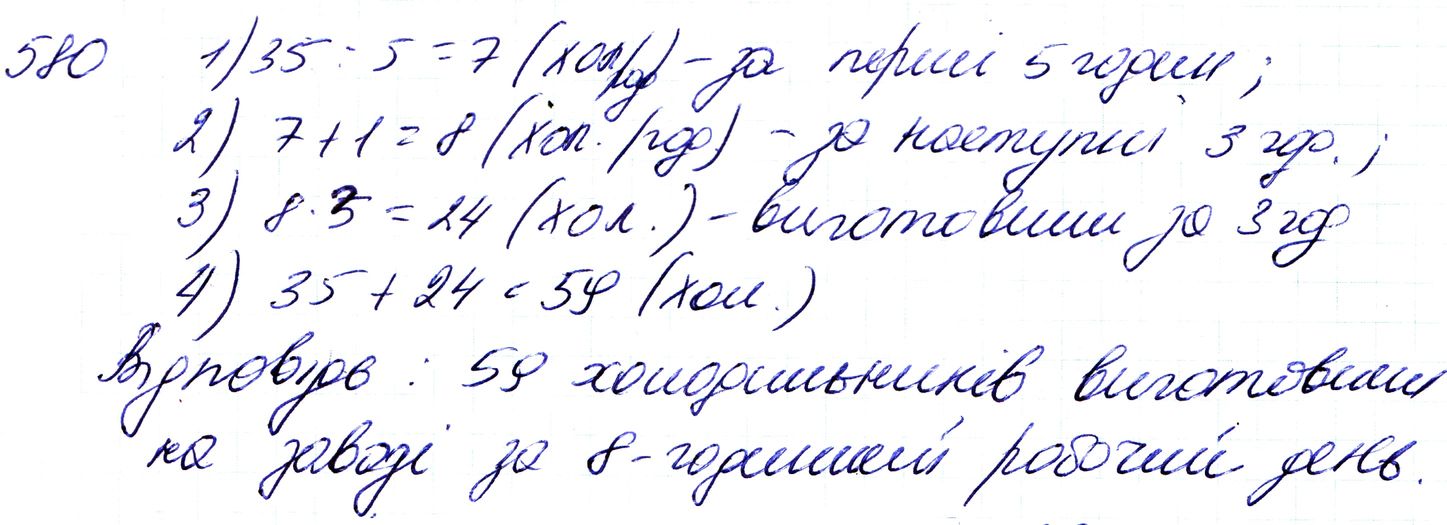 580 1) 35 : 5 = 7 (хол/год) – за перші 5 годин;
2) 7 + 1 = 8 (хол./год) – за наступні 3 год.;
3) 8 · 3 = 24 (хол.) – виготовили за 3 год
4) 35 + 24 = 59 (хол.)
Відповідь: 59 холодильників виготовили
на заводі за 8-годинний робочий день.